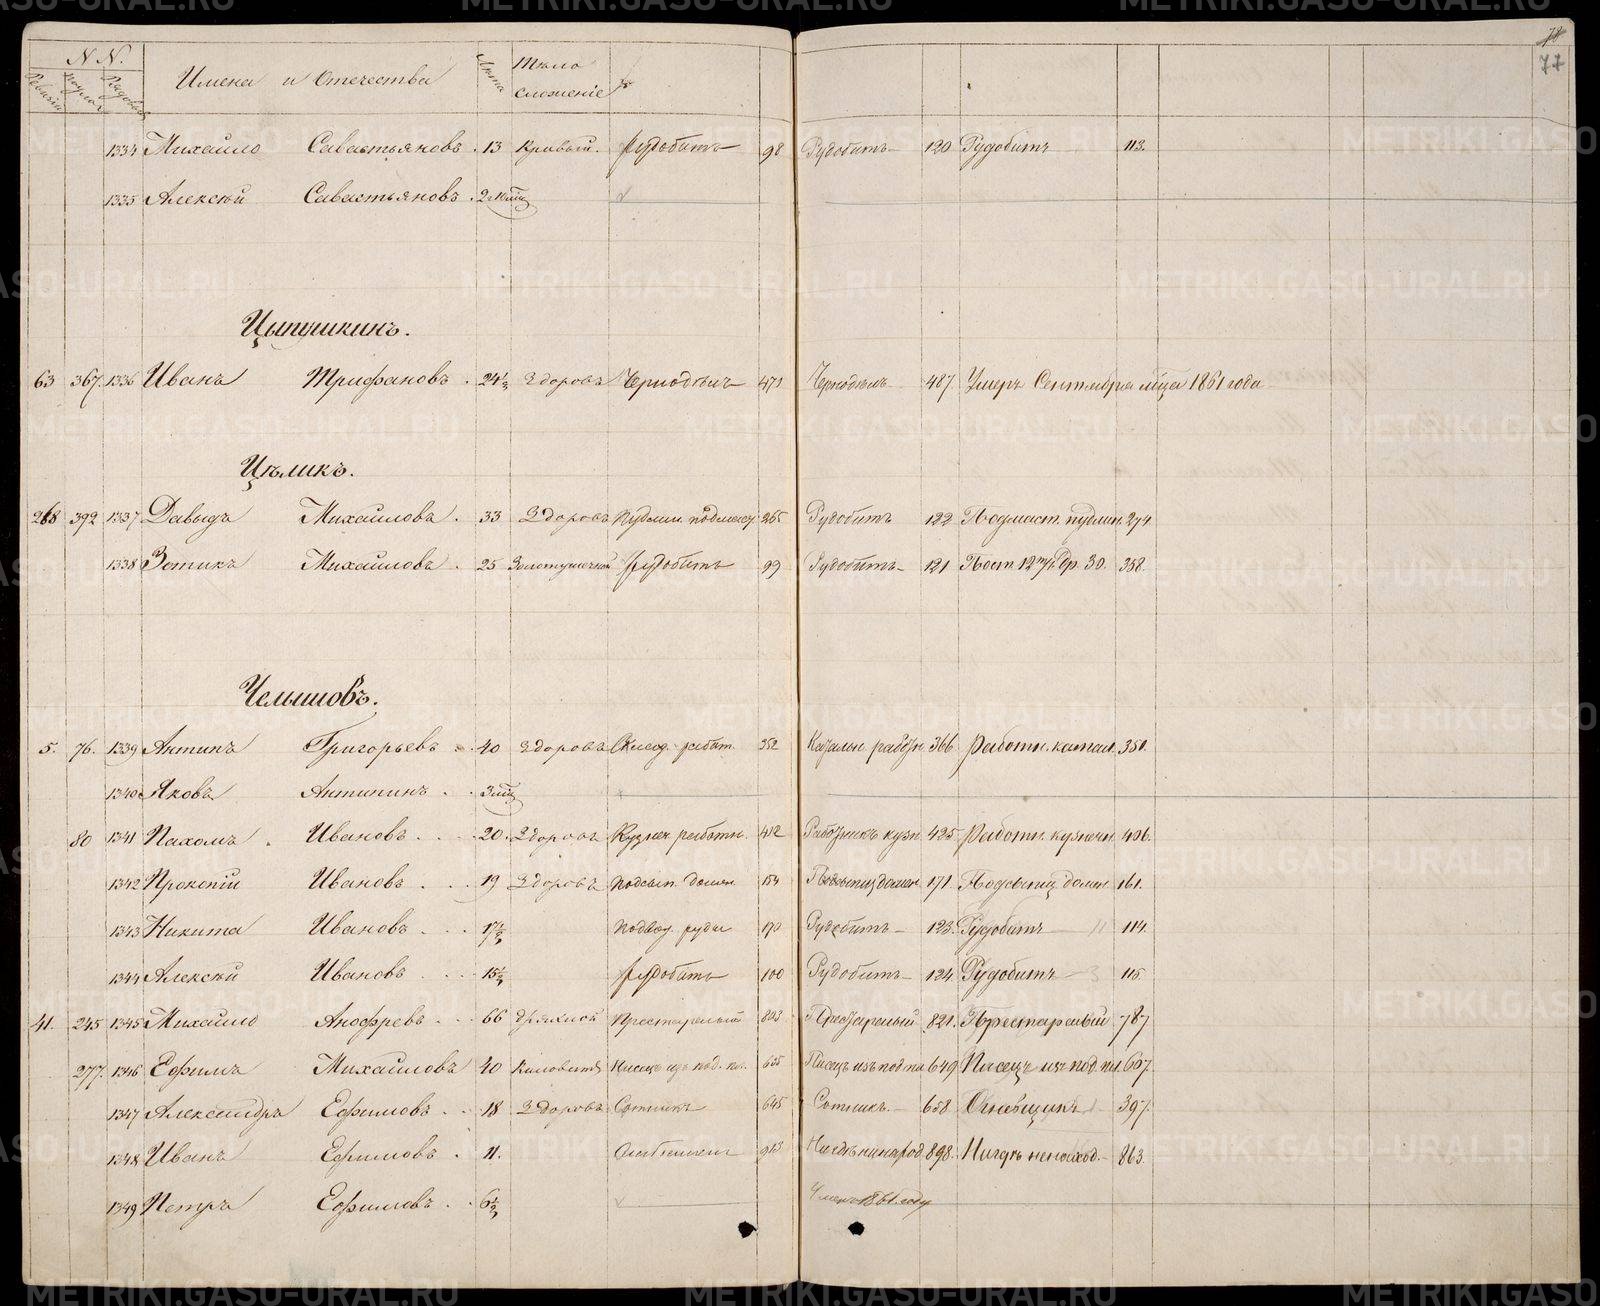 78
77
N N.
Ревизіи Рядовые Имена и Отечества Лѣта Тѣло сложеніе
1334 Михайло Савастьяновъ. 13 Кривый. Рудобитъ 98 Рудобитъ 120 Рудобитъ 113.
1335 Алексѣй Савастьяновъ.
Цыпушкинъ.
63 367. 1336 Иванъ Трифановъ. 24½ Здоровъ Чернодѣлъ 471 Чернодѣлъ 487 Умеръ Сентября мѣсяца 1861 года
Цѣликъ.
268 392 1337 Давыдъ Михайловъ. 33 Здоровъ Пудлин. подмаст. 265 Рудобитъ 122 Подмаст. пудлин. 274.
1338 Зотикъ Михайловъ. 25 Золотушеный Рудобитъ 99 Рудобитъ 121 358.
Челышовъ.
5. 76. 1339 Антипъ Григорьевъ 40 Здоровъ работ. 352 Катальн. работн 366. Работн. катал. 350.
1340 Яковъ Антипинъ. 3 мѣц
80 1341 Пахомъ. Ивановъ 20. Здоровъ Кузнеч работн. 412 Работникъ кузн 425 Работн. кузнечн 406.
1342 Прокопій Ивановъ 19 Здоровъ Подсып. Домен 154 Подсыпщ домен. 171. Подсыпщ домен. 161.
1343 Никита Ивановъ 17½ Подвоз. руды 190 Рудобитъ 123. Рудобитъ 11 114.
1344 Алексѣй Ивановъ 15½ Рудобитъ 100 Рудобитъ 124. Рудобитъ 3 115.
41. 245 1345 Михайло Анофревъ 66 Дряхлъ Престарелый 803 Престарелый 821. Престарелый 787
277. 1346 Ефимъ Михайловъ 40 Киловатъ Писецъ изъ под. пл. 635 Писецъ изъ под пл 649 Писецъ изъ под. пл. 607.
1347 Александръ Ефимовъ 18 Здоровъ Сотникъ 645 Сотникъ. 658. 397.
1348 Иванъ Ефимовъ. 11. 913 898. Нигдѣ ненаход. 863.
1349 Петръ Ефимовъ 6½ Умеръ 1861 году
METRIKI.GASO-URAL.RU